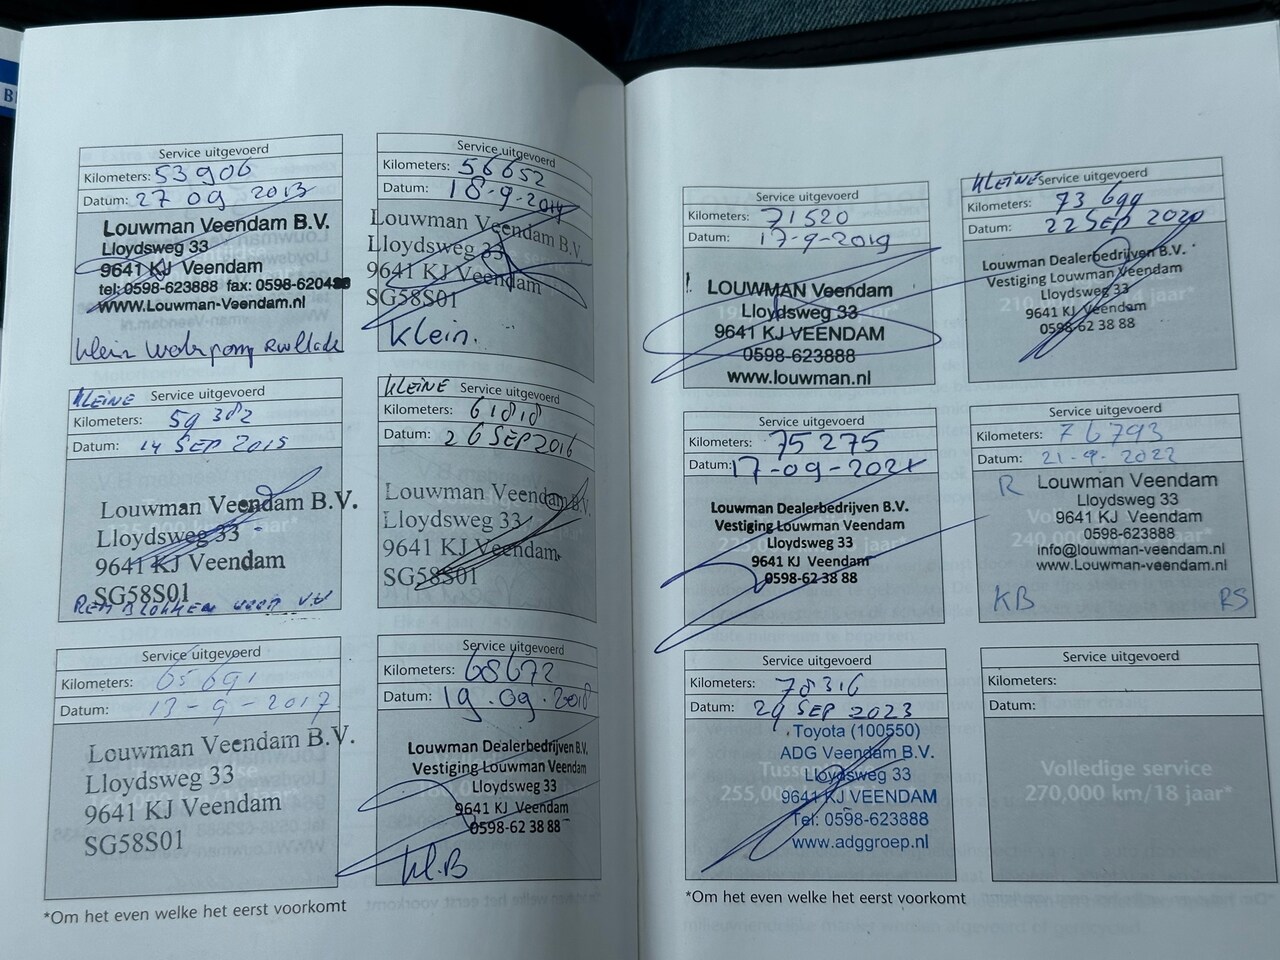 Service uitgevoerd
Kilometers: 53906
Datum: 27 09 2013
Louwman Veendam B.V.
Lloydsweg 33
9641 KJ Veendam
tel: 0598-623888 fax: 0598-620438
WWW.Louwman-Veendam.nl
klein
Service uitgevoerd
Kilometers: 56652
Datum: 18-9-2014
Louwman Veendam B.V.
Lloydsweg 33
9641 KJ Veendam
SG58S01
Klein.
KLEINE Service uitgevoerd
Kilometers: 59382
Datum: 14 SEP 2015
Louwman Veendam B.V.
Lloydsweg 33
9641 KJ Veendam
SG58S01
KLEINE Service uitgevoerd
Kilometers: 61818
Datum: 26 SEP 2016
Louwman Veendam B.V.
Lloydsweg 33
9641 KJ Veendam
SG58S01
Service uitgevoerd
Kilometers: 65691
Datum: 13-9-2017
Louwman Veendam B.V.
Lloydsweg 33
9641 KJ Veendam
SG58S01
Service uitgevoerd
Kilometers: 68672
Datum: 19.09.2018
Louwman Dealerbedrijven B.V.
Vestiging Louwman Veendam
Lloydsweg 33
9641 KJ Veendam
0598-62 38 88
Kl.B
*Om het even welke het eerst voorkomt
Service uitgevoerd
Kilometers: 71520
Datum: 17-9-2019
LOUWMAN Veendam
Lloydsweg 33
9641 KJ VEENDAM
0598-623888
www.louwman.nl
KLEINE Service uitgevoerd
Kilometers: 73699
Datum: 22 SEP 2020
Louwman Dealerbedrijven B.V.
Vestiging Louwman Veendam
Lloydsweg 33
9641 KJ Veendam
0598-62 38 88
Service uitgevoerd
Kilometers: 75275
Datum: 17-09-2021
Louwman Dealerbedrijven B.V.
Vestiging Louwman Veendam
Lloydsweg 33
9641 KJ Veendam
0598-62 38 88
Service uitgevoerd
Kilometers: 76793
Datum: 21-9-2022
R Louwman Veendam
Lloydsweg 33
9641 KJ Veendam
0598-623888
info@louwman-veendam.nl
www.Louwman-veendam.nl
KB RS
Service uitgevoerd
Kilometers: 78316
Datum: 29 SEP 2023
Toyota (100550)
ADG Veendam B.V.
Lloydsweg 33
9641 KJ VEENDAM
Tel: 0598-623888
www.adggroep.nl
255,000
Service uitgevoerd
Kilometers:
Datum:
Volledige service
270,000 km/18 jaar*
*Om het even welke het eerst voorkomt